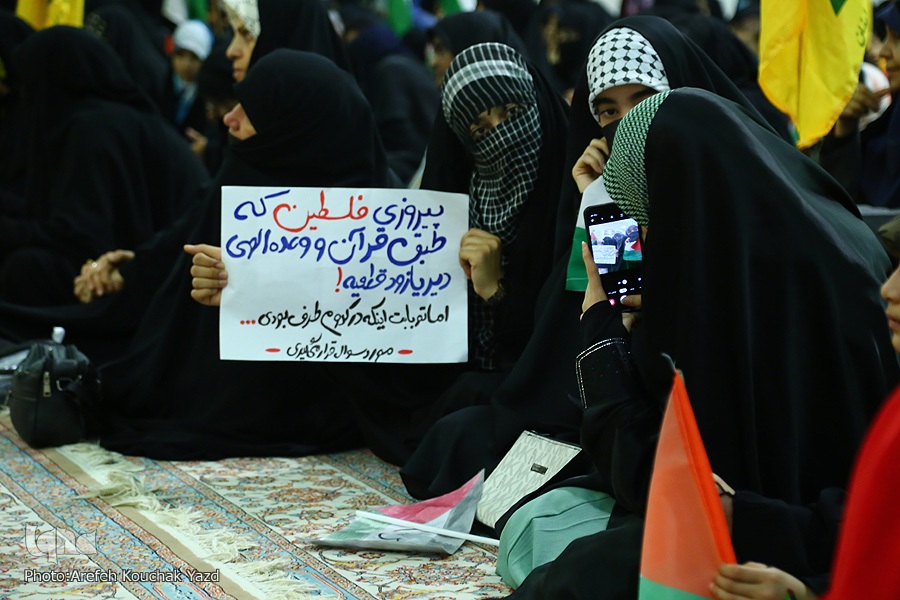 پیروزی فلسطین که
طبق قرآن و وعده الهی
دیر یا زود قطعیه!
اما تو بابت اینکه در کدوم طرف بودی ...
- مورد سوال قرار میگیری -
iQna
Photo:Arefeh Kouchak Yazd